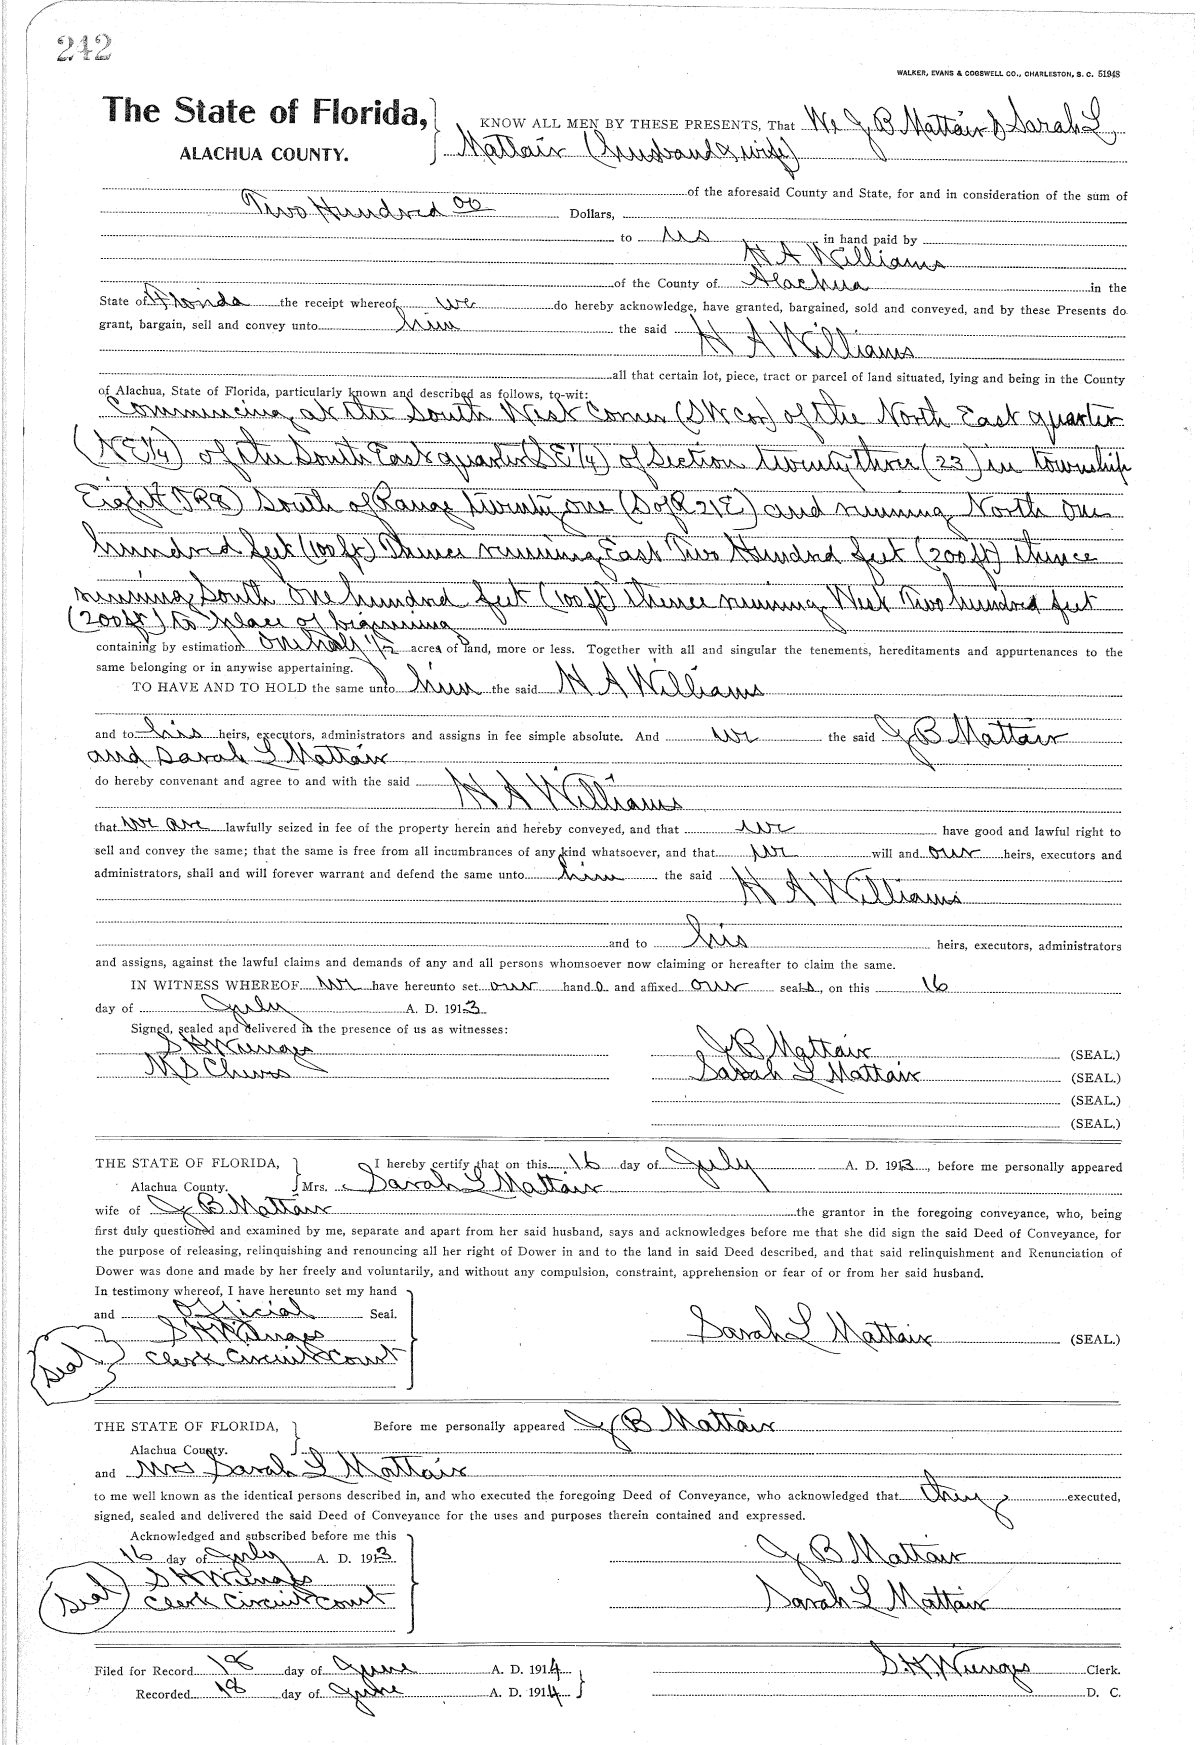 242
WALKER, EVANS & COGSWELL CO., CHARLESTON, S. C. 51948
The State of Florida,
ALACHUA COUNTY.
KNOW ALL MEN BY THESE PRESENTS, That We J B Mattair & Sarah L
Mattair (husband & wife)
of the aforesaid County and State, for and in consideration of the sum of
Two Hundred 00 Dollars,
to us in hand paid by
H A Williams
of the County of Alachua in the
State of Florida the receipt whereof we do hereby acknowledge, have granted, bargained, sold and conveyed, and by these Presents do
grant, bargain, sell and convey unto him the said H A Williams
all that certain lot, piece, tract or parcel of land situated, lying and being in the County
of Alachua, State of Florida, particularly known and described as follows, to-wit:
Commencing at the South West Corner (SW cor) of the North East quarter
(NE 1/4) of the South East quarter (SE 1/4) of Section twenty three (23) in township
Eight (TP8) South of Range twenty one (S of R 21E) and running North One
hundred feet (100 ft) Thence running East Two Hundred feet (200 ft) thence
running South One hundred feet (100 ft) thence running West Two hundred feet
(200 ft) to place of beginning
containing by estimation One half 1/2 acres of land, more or less. Together with all and singular the tenements, hereditaments and appurtenances to the
same belonging or in anywise appertaining.
TO HAVE AND TO HOLD the same unto him the said H A Williams
and to his heirs, executors, administrators and assigns in fee simple absolute. And we the said J B Mattair
and Sarah L Mattair
do hereby convenant and agree to and with the said H A Williams
that we are lawfully seized in fee of the property herein and hereby conveyed, and that we have good and lawful right to
sell and convey the same; that the same is free from all incumbrances of any kind whatsoever, and that we will and our heirs, executors and
administrators, shall and will forever warrant and defend the same unto him the said H A Williams
and to his heirs, executors, administrators
and assigns, against the lawful claims and demands of any and all persons whomsoever now claiming or hereafter to claim the same.
IN WITNESS WHEREOF we have hereunto set our hands and affixed our seals, on this 16
day of July A. D. 1913
Signed, sealed and delivered in the presence of us as witnesses:
S H Wienges J B Mattair (SEAL.)
M S Sarah L Mattair (SEAL.)
(SEAL.)
(SEAL.)
THE STATE OF FLORIDA, I hereby certify that on this 16 day of July A. D. 1913, before me personally appeared
Alachua County. Mrs. Sarah L Mattair
wife of J B Mattair the grantor in the foregoing conveyance, who, being
first duly questioned and examined by me, separate and apart from her said husband, says and acknowledges before me that she did sign the said Deed of Conveyance, for
the purpose of releasing, relinquishing and renouncing all her right of Dower in and to the land in said Deed described, and that said relinquishment and Renunciation of
Dower was done and made by her freely and voluntarily, and without any compulsion, constraint, apprehension or fear of or from her said husband.
In testimony whereof, I have hereunto set my hand
and Official Seal.
S H Wienges Sarah L Mattair (SEAL.)
Seal Clerk Circuit Court
THE STATE OF FLORIDA, Before me personally appeared J B Mattair
Alachua County.
and Mrs Sarah L Mattair
to me well known as the identical persons described in, and who executed the foregoing Deed of Conveyance, who acknowledged that they executed,
signed, sealed and delivered the said Deed of Conveyance for the uses and purposes therein contained and expressed.
Acknowledged and subscribed before me this
16 day of July A. D. 1913 J B Mattair
S H Wienges
Seal Clerk Circuit Court Sarah L Mattair
Filed for Record 18 day of June A. D. 1914 S. H. Wienges Clerk.
Recorded 18 day of June A. D. 1914 D. C.